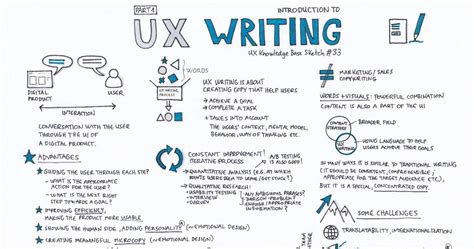 PART 1
UX WRITING
INTRODUCTION TO
UX Knowledge Base Sketch #33
DIGITAL PRODUCT
USER
INTERACTION
CONVERSATION WITH THE USER
THROUGH THE UI OF
A DIGITAL PRODUCT
WORDS
UX WRITING PROCESS
UX WRITING IS ABOUT
CREATING COPY THAT HELP USERS
→ ACHIEVE A GOAL
→ COMPLETE A TASK
+ TAKES INTO ACCOUNT
THE USERS' CONTEXT, MENTAL MODEL,
BEHAVIOR, WAY OF THINKING, ETC.
≠ MARKETING/SALES
COPYWRITING
WORDS + VISUALS: POWERFUL COMBINATION
CONTENT IS ALSO A PART OF THE UI
CONTENT STRATEGY
UX WRITING
USING LANGUAGE TO HELP
USERS ACHIEVE THEIR GOALS
ADVANTAGES
GUIDING THE USER THROUGH EACH STEP
- WHAT IS THE APPROPRIATE
ACTION FOR THE USER?
- WHAT IS THE NEXT STEP?
IMPROVING EFFICIENCY,
MAKING THE PRODUCT MORE USABLE
SHOWING THE HUMAN SIDE, ADDING PERSONALITY (→ EMOTIONAL DESIGN)
CREATING MEANINGFUL MICROCOPY (→ EMOTIONAL DESIGN)
CONSTANT IMPROVEMENT!
ITERATIVE PROCESS
A/B TESTING
IS ALSO GOOD
• QUANTITATIVE ANALYSIS
• QUALITATIVE RESEARCH:
- USABILITY TESTING
- INTERVIEW
- SURVEY
ANY AMBIGUOUS
PARTS?
IN MANY WAYS IT IS SIMILAR TO TRADITIONAL WRITING
(IT SHOULD BE COHERENT, COMPREHENSIBLE,
APPROPRIATE FOR THE TARGET AUDIENCE ETC.),
BUT IT IS A SPECIAL, CONCENTRATED COPY.
SOME CHALLENGES
TRANSLATABILITY, INTERNATIONALIZATION